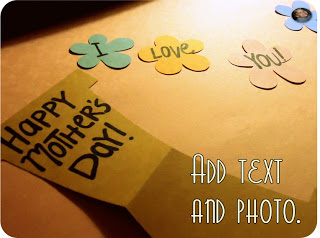 I
Love
YOU!
HAPPY
MOTHER'S
DAY!
ADD TEXT
AND PHOTO.